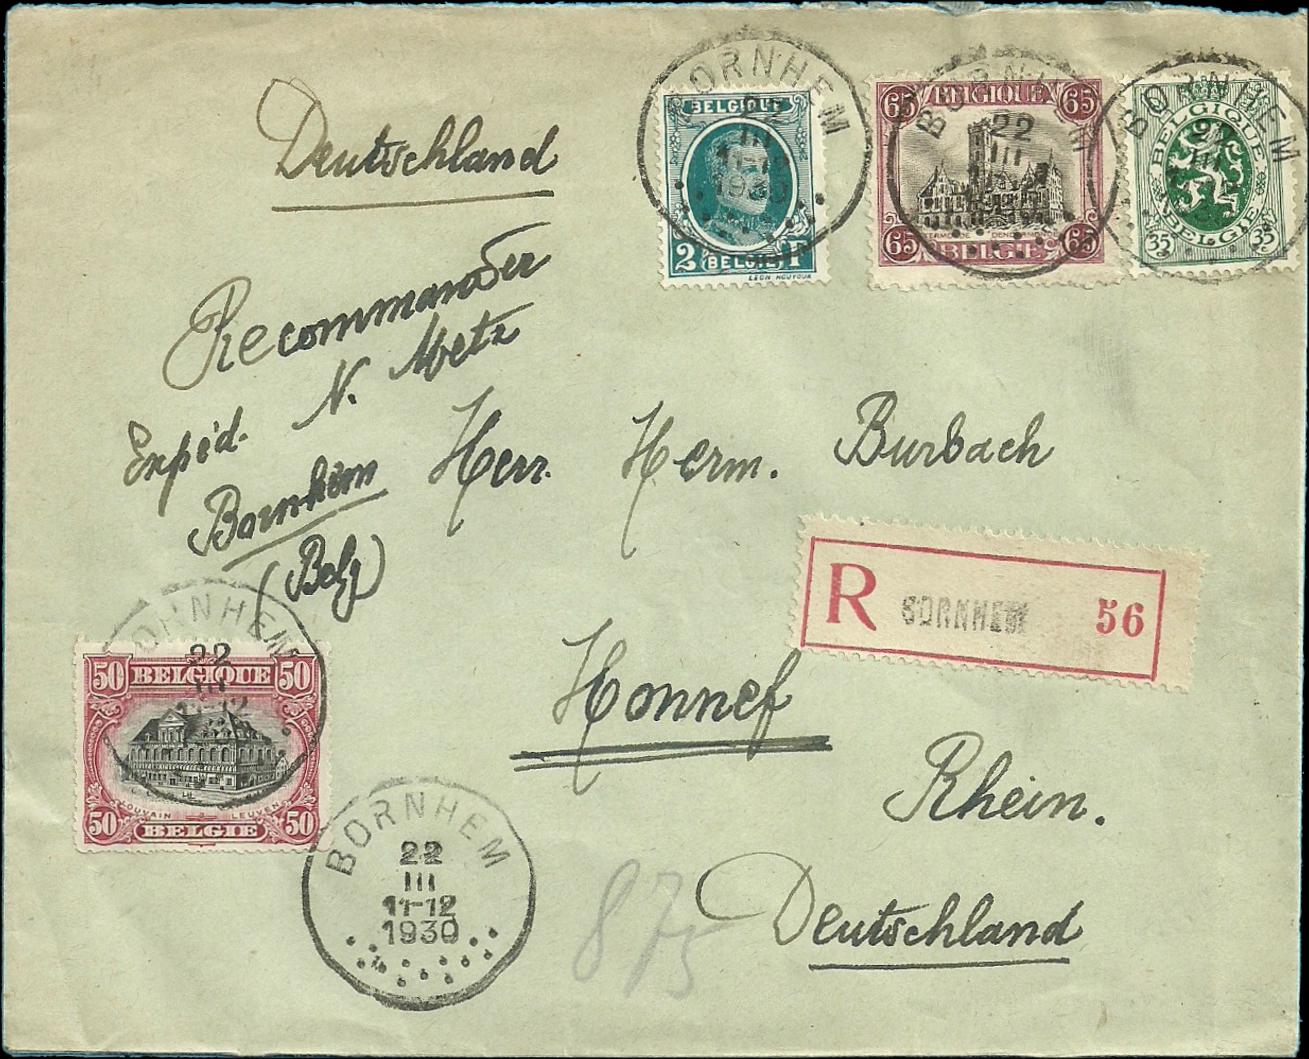 Deutschland
Recommander
Expéd. N. Metz
Bornhem
(Belg)
BORNHEM
22
III
11-12
1930
BELGIQUE
2 BELGIË F
LEON HOUYOUX
BORNHEM
22
III
65 BELGIQUE 65
TERMONDE DENDERMONDE
65 BELGIË 65
BORNHEM
22
III
BELGIQUE
BELGIË
35 35
Herr. Herm. Burbach
R BORNHEM 56
Honnef
Rhein.
Deutschland
BORNHEM
22
III
11-12
50 BELGIQUE 50
LOUVAIN LEUVEN
50 BELGIE 50
BORNHEM
22
III
11-12
1930
875